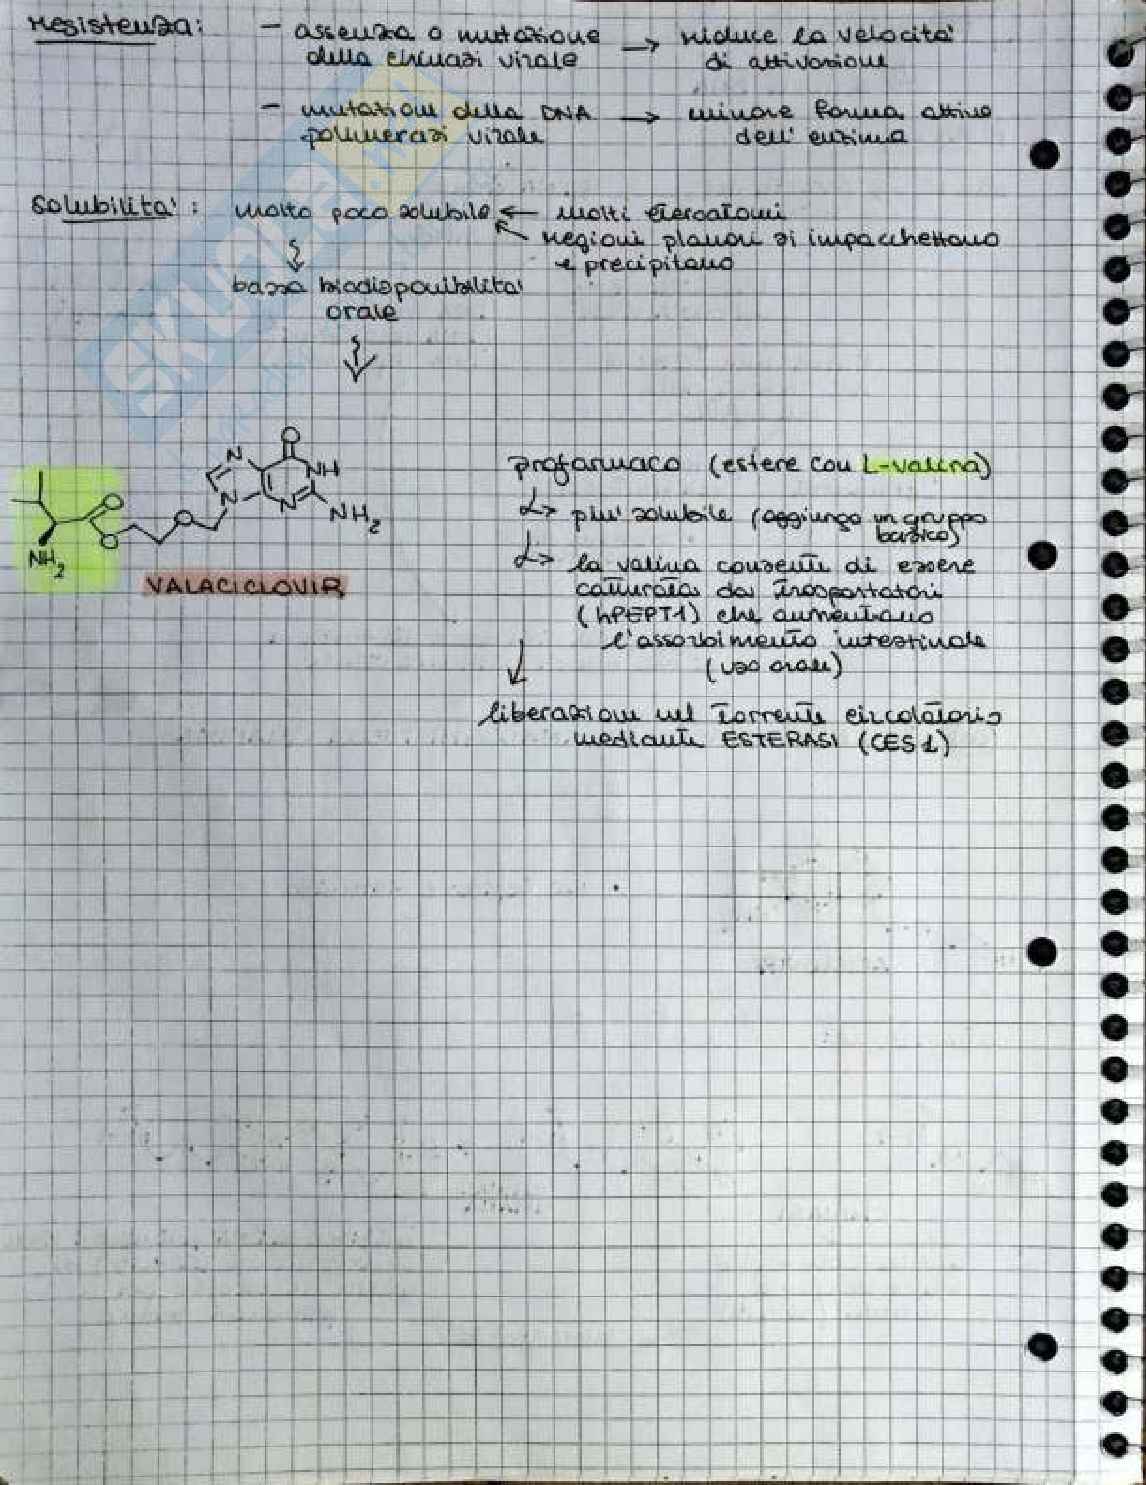 Resistenza: - assenza o mutazione → riduce la velocità
della chinasi virale di attivazione
- mutazioni della DNA → minore forma attiva
polimerasi virale dell'enzima
Solubilità: molto poco solubile ← molti eteroatomi
regioni planari si impacchettano
e precipitano
bassa biodisponibilità
orale
profarmaco (estere con L-valina)
più solubile (aggiungo un gruppo
basico)
la valina consente di essere
catturata da trasportatori
(hPEPT1) che aumentano
l'assorbimento intestinale
(uso orale)
liberazione nel torrente circolatorio
mediante ESTERASI (CES1)
N O NH
N N NH2
O O O
NH2
VALACICLOVIR
SKUOLA